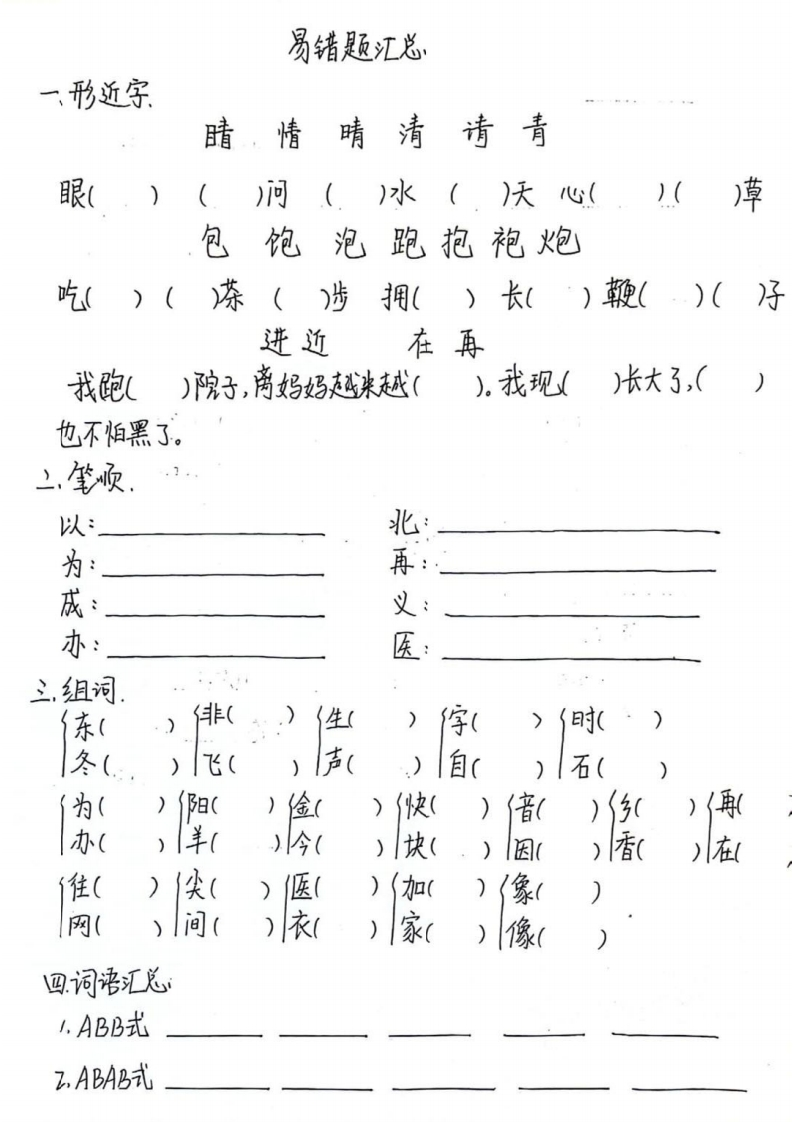 易错题汇总
一、形近字.
睛 情 晴 清 请 青
眼( ) ( )问 ( )水 ( )天 心( ) ( )草
包 饱 泡 跑 抱 袍 炮
吃( ) ( )茶 ( )步 拥( ) 长( ) 鞭( ) ( )子
进 近 在 再
我跑( )院子,离妈妈越来越( )。我现( )长大了,( )
也不怕黑了。
二、笔顺.
以: 北:
为: 再:
成: 义:
办: 医:
三、组词.
东( ) 非( ) 生( ) 字( ) 时( )
冬( ) 飞( ) 声( ) 自( ) 石( )
为( ) 阳( ) 金( ) 快( ) 音( ) 乡( ) 再(
办( ) 羊( ) 今( ) 块( ) 因( ) 香( ) 在(
往( ) 尖( ) 医( ) 加( ) 象( )
网( ) 间( ) 衣( ) 家( ) 像( )
四.词语汇总
1.ABB式
2.ABAB式